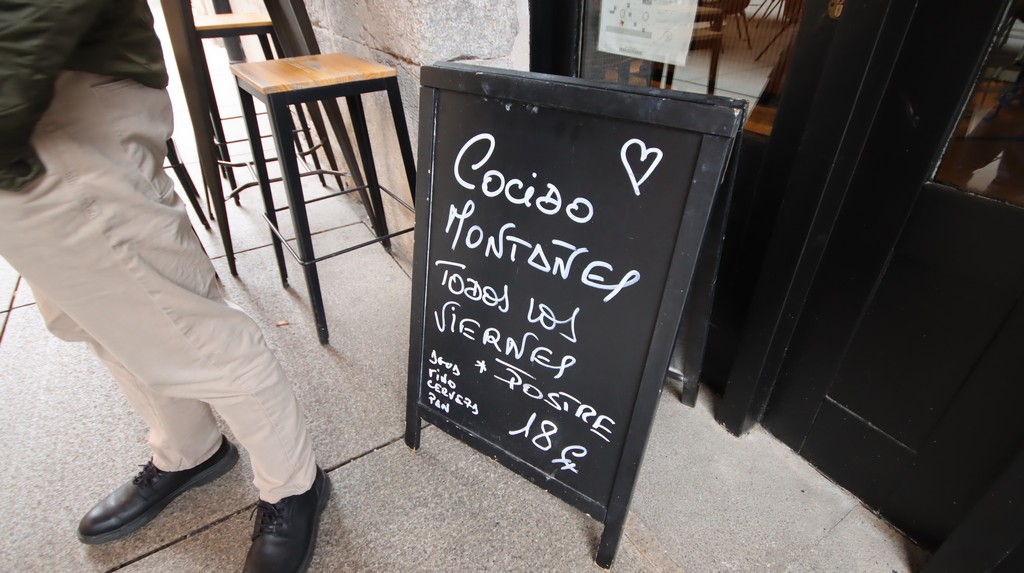 Cocido
MONTAÑES
TODOS LOS
VIERNES
* POSTRE
AGUA
VINO
CERVEZA
PAN
18€